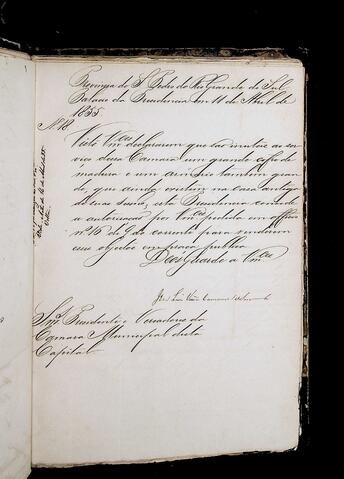 Provincia de S. Pedro do Rio Grande do Sul
Palacio da Presidencia em 11 de Abril de
1855.
N. 18.
Visto Vmces declararem que são inuteis ao ser-
viço dessa Camara um grande cofre de
madeira e um armario tambem gran-
de, que ainda existem na casa antiga
de suas, esta Presidencia concede
a autorisação por Vmces pedida em officio
nº 16 de 9 do corrente para venderem
esses objectos em praça publica.
Deos Guarde a Vmces
Snres Presidente e Vereadores da
Camara Municipal desta
Capital.